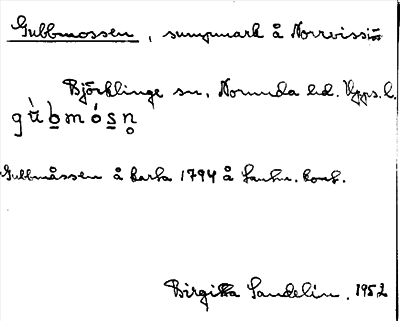 Gubbmossen, sumpmark å Norrvissjö
Björklinge sn, Norunda hd. Upps. l.
gu̇̀b̲mós̲n̥
Gubbmåssen å karta 1794 å Lantm. kont.
Birgitta Sandelin. 1952